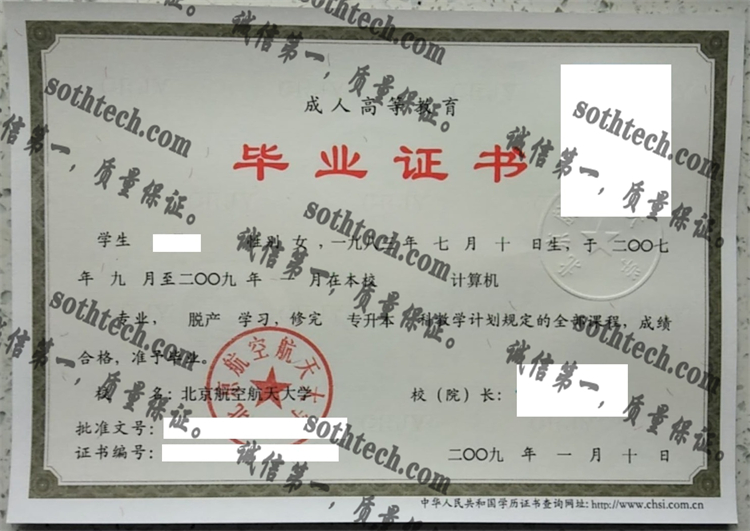 成人高等教育
毕业证书
学生 性别 女，一九八三年 七 月 十 日生，于 二〇〇七
年 九 月至二〇〇九 年 一 月在本校 计算机
专业， 脱产 学习，修完 专升本 科教学计划规定的全部课程，成绩
合格，准予毕业。
校 名：北京航空航天大学
校（院）长：
批准文号：
证书编号：
二〇〇九 年 一 月 十 日
中华人民共和国学历证书查询网址：http://www.chsi.com.cn
北京航空航天大
sothtech.com
诚信第一，质量保证。
sothtech.com
诚信第一，质量保证。
sothtech.com
诚信第一，质量保证。
sothtech.com
诚信第一，质量保证。
sothtech.com
诚信第一，质量保证。
sothtech.com
诚信第一，质量保证。
sothtech.com
诚信第一，质量保证。